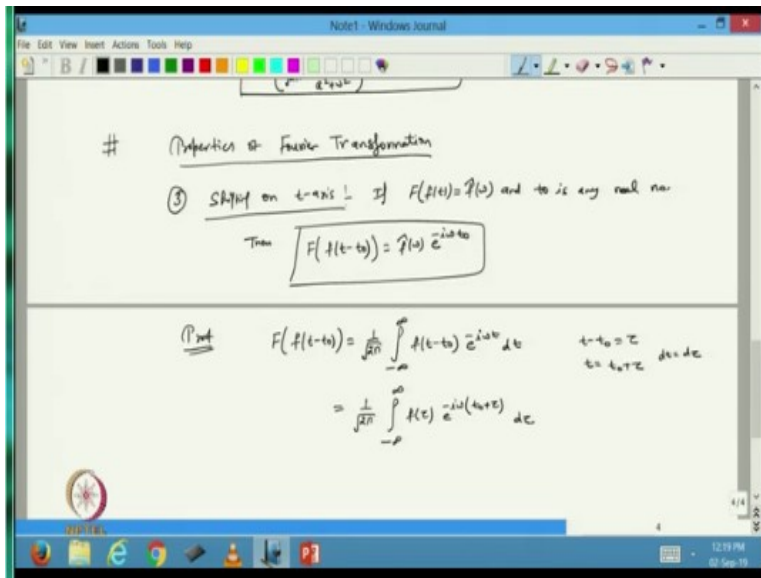 Note1 - Windows Journal
File Edit View Insert Actions Tools Help
B I
a²+ω²
# Properties of Fourier Transformation
③ Shifting on t-axis :- If F(f(t)) = f̂(ω) and t₀ is any real no.
Then F(f(t-t₀)) = f̂(ω) e^{-iωt₀}
Proof F(f(t-t₀)) = 1/√2π ∫_{-∞}^{∞} f(t-t₀) e^{-iωt} dt t-t₀ = τ
t = t₀+τ dt = dτ
= 1/√2π ∫_{-∞}^{∞} f(τ) e^{-iω(t₀+τ)} dτ
NPTEL
4/4
4
12:19 PM
02-Sep-19